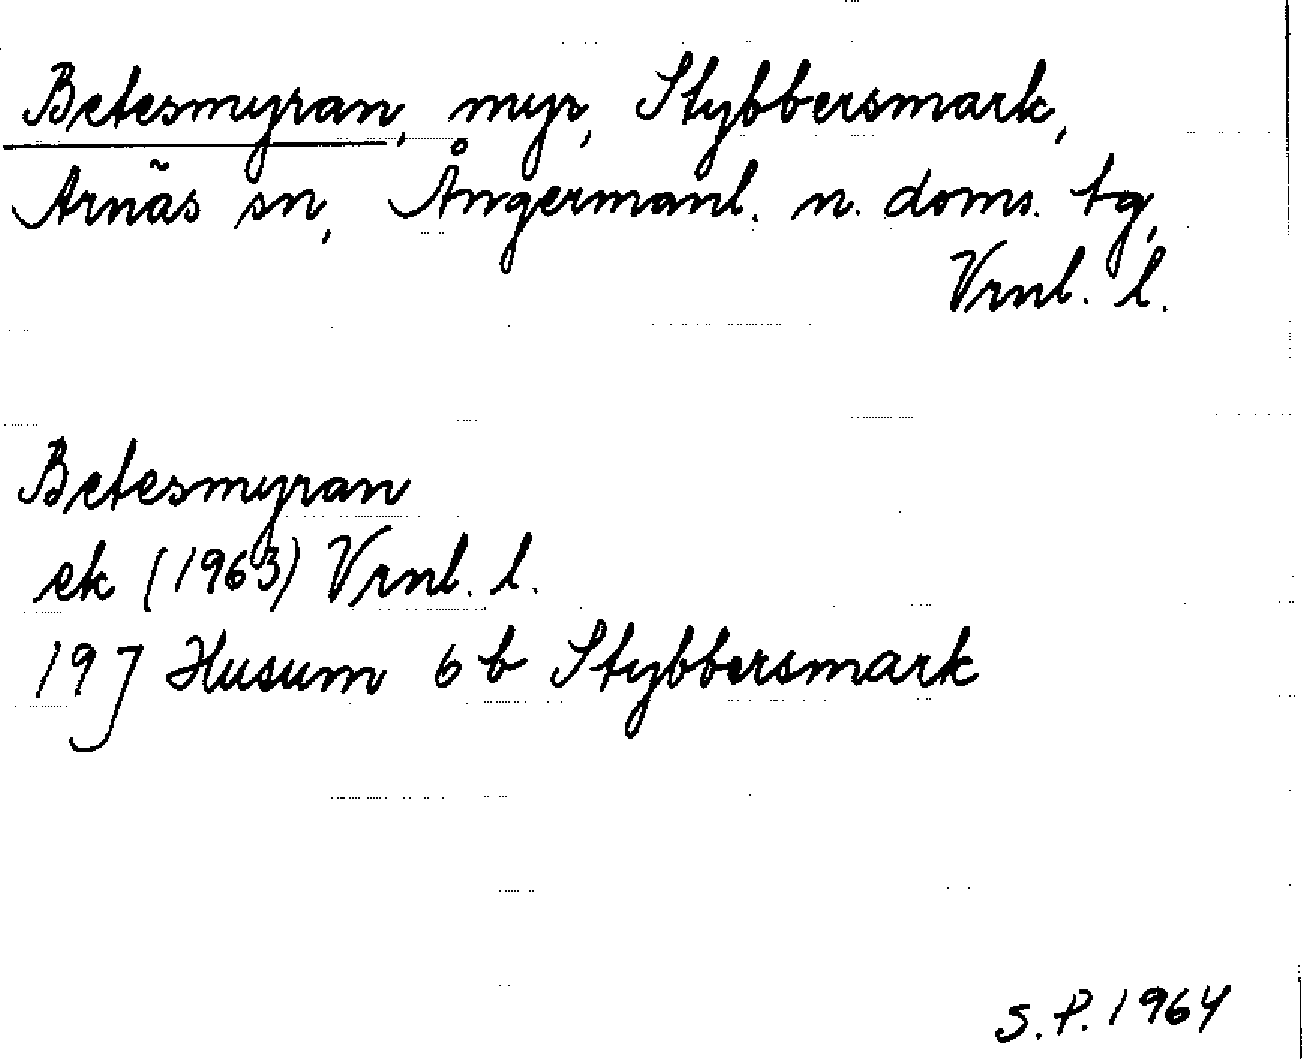 Betesmyran, myr, Stybbersmark,
Arnäs sn, Ångermanl. n. doms. tg,
Vrnl. l.
Betesmyran
ek (1963) Vrnl. l.
19J Husum 6 b Stybbersmark
S.P. 1964